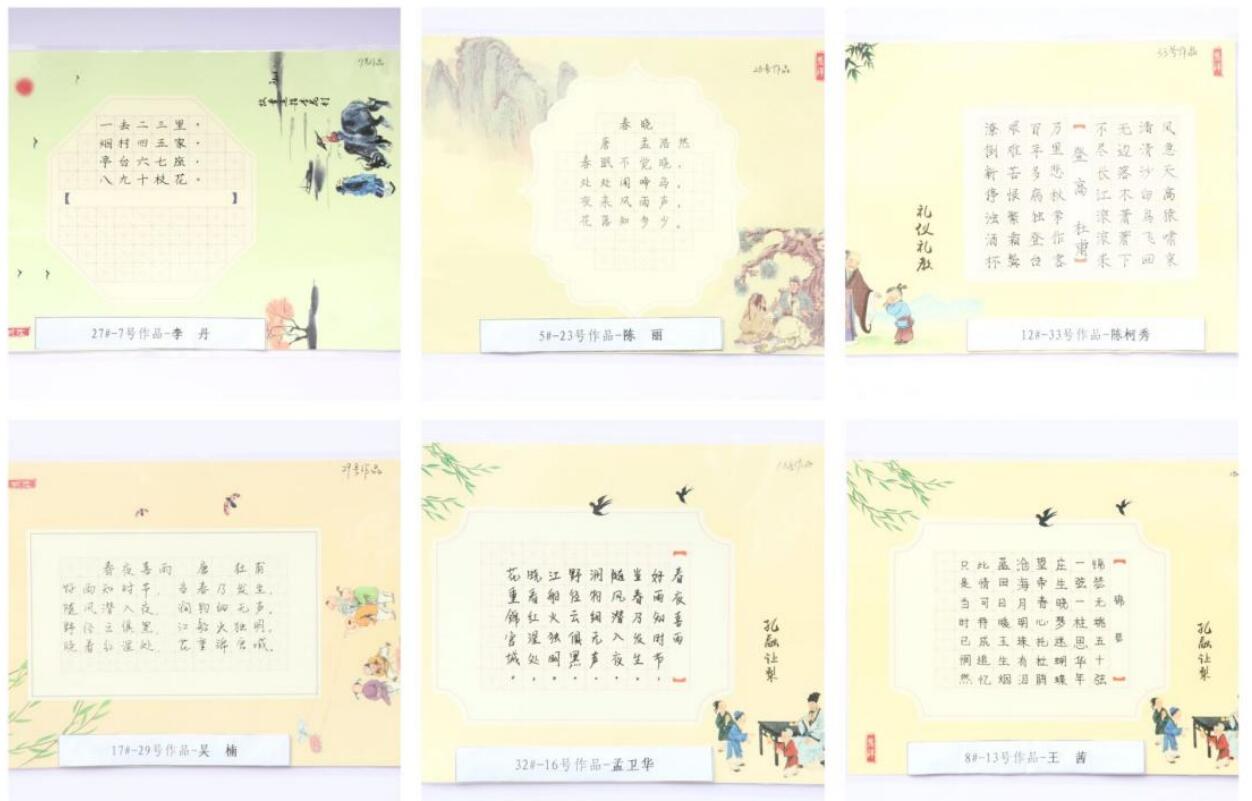 7号作品
牧童遥指杏花村
一去二三里。
烟村四五家。
亭台六七座。
八九十枝花。
【 】
27#-7号作品-李 丹
春晓
唐 孟浩然
春眠不觉晓，
处处闻啼鸟。
夜来风雨声，
花落知多少。
5#-23号作品-陈 丽
33号作品
风急天高猿啸哀
渚清沙白鸟飞回
无边落木萧萧下
不尽长江滚滚来
【登高 杜甫】
万里悲秋常作客
百年多病独登台
艰难苦恨繁霜鬓
潦倒新停浊酒杯
礼仪礼教
12#-33号作品-陈柯秀
29号作品
春夜喜雨 唐 杜甫
好雨知时节，当春乃发生。
随风潜入夜，润物细无声。
野径云俱黑，江船火独明。
晓看红湿处，花重锦官城。
17#-29号作品-吴 楠
【春夜喜雨】
好雨知时节，
当春乃发生。
随风潜入夜，
润物细无声。
野径云俱黑，
江船火独明。
晓看红湿处，
花重锦官城。
孔融让梨
32#-16号作品-孟卫华
【锦瑟】
锦瑟无端五十弦
一弦一柱思华年
庄生晓梦迷蝴蝶
望帝春心托杜鹃
沧海月明珠有泪
蓝田日暖玉生烟
此情可待成追忆
只是当时已惘然
孔融让梨
8#-13号作品-王 茜